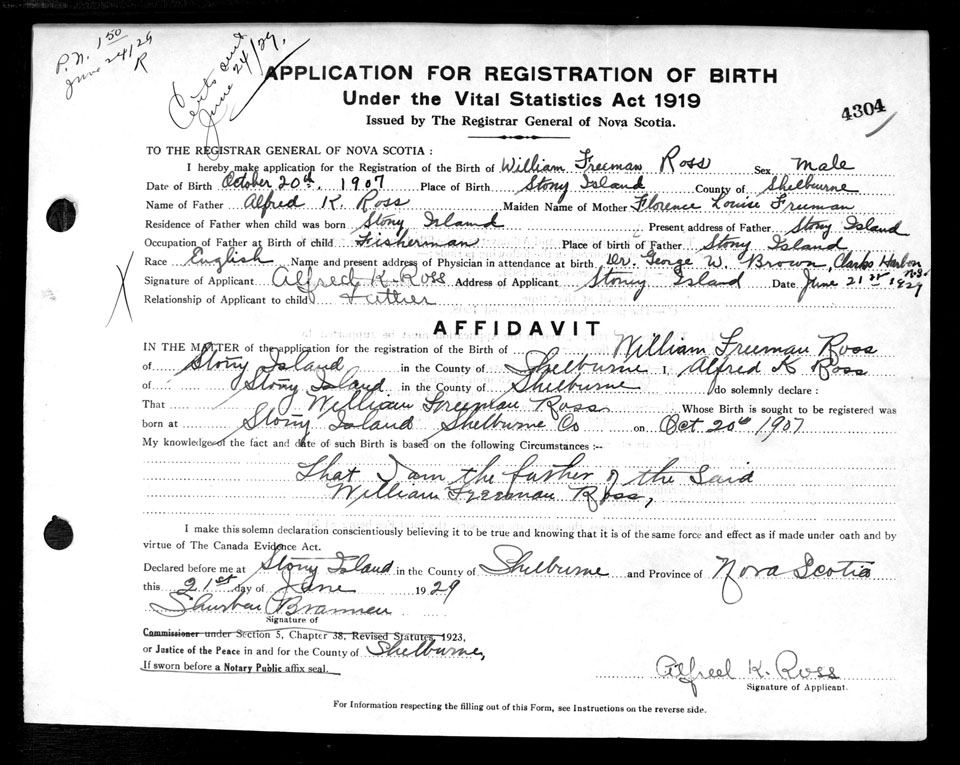 P.N. 1 50
June 24/29
R
Certs sent
June 24/29.
APPLICATION FOR REGISTRATION OF BIRTH
Under the Vital Statistics Act 1919
Issued by The Registrar General of Nova Scotia.
4304
TO THE REGISTRAR GENERAL OF NOVA SCOTIA :
I hereby make application for the Registration of the Birth of William Freeman Ross Sex Male
Date of Birth October 20th. 1907 Place of Birth Stony Island County of Shelburne
Name of Father Alfred K. Ross Maiden Name of Mother Florence Louise Freeman
Residence of Father when child was born Stony Island Present address of Father Stony Island
Occupation of Father at Birth of child Fisherman Place of birth of Father Stony Island
Race English Name and present address of Physician in attendance at birth Dr. George W. Brown, Clarks Harbor N.S.
Signature of Applicant Alfred K. Ross Address of Applicant Stony Island Date June 21st 1929
Relationship of Applicant to child Father
AFFIDAVIT
IN THE MATTER of the application for the registration of the Birth of William Freeman Ross
of Stony Island in the County of Shelburne I, Alfred K Ross
of Stony Island in the County of Shelburne do solemnly declare :
That William Freeman Ross Whose Birth is sought to be registered was
born at Stony Island Shelburne Co on Oct 20th 1907
My knowledge of the fact and date of such Birth is based on the following Circumstances :--
That I am the father of the said
William Freeman Ross,
I make this solemn declaration conscientiously believing it to be true and knowing that it is of the same force and effect as if made under oath and by
virtue of The Canada Evidence Act.
Declared before me at Stony Island in the County of Shelburne and Province of Nova Scotia
this 21st day of June 1929
Brannen
Signature of
Commissioner under Section 5, Chapter 38, Revised Statutes, 1923,
or Justice of the Peace in and for the County of Shelburne,
If sworn before a Notary Public affix seal.
Alfred K. Ross
Signature of Applicant.
For Information respecting the filling out of this Form, see Instructions on the reverse side.